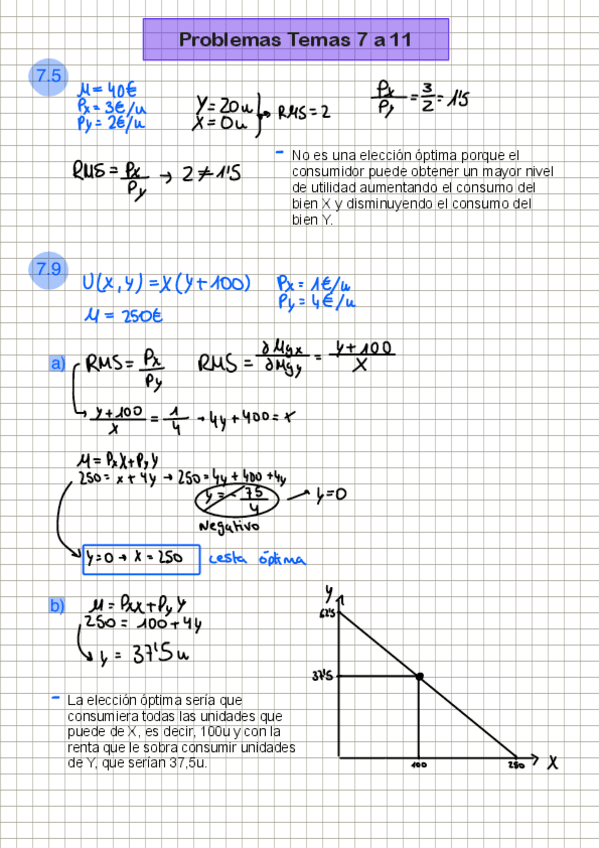 Problemas Temas 7 a 11
7.5
M = 40€
Px = 3€/u
Py = 2€/u
Y = 20u
X = 0u
→ RMS = 2
Px/Py = 3/2 = 1'5
RMS = Px/Py → 2 ≠ 1'5
- No es una elección óptima porque el
consumidor puede obtener un mayor nivel
de utilidad aumentando el consumo del
bien X y disminuyendo el consumo del
bien Y.
7.9
U(x,y) = x(y+100)
Px = 1€/u
Py = 4€/u
M = 250€
a) RMS = Px/Py
RMS = ∂Mgx/∂Mgy = y+100/x
y+100/x = 1/4 → 4y + 400 = x
M = PxX + PyY
250 = x + 4y → 250 = 4y + 400 + 4y
y = - 75/4 → y = 0
Negativo
y=0 → x = 250 cesta óptima
b) M = PxX + PyY
250 = 100 + 4y
y = 37'5u
- La elección óptima sería que
consumiera todas las unidades que
puede de X, es decir, 100u y con la
renta que le sobra consumir unidades
de Y, que serían 37,5u.
y
62'5
37'5
100
250
X